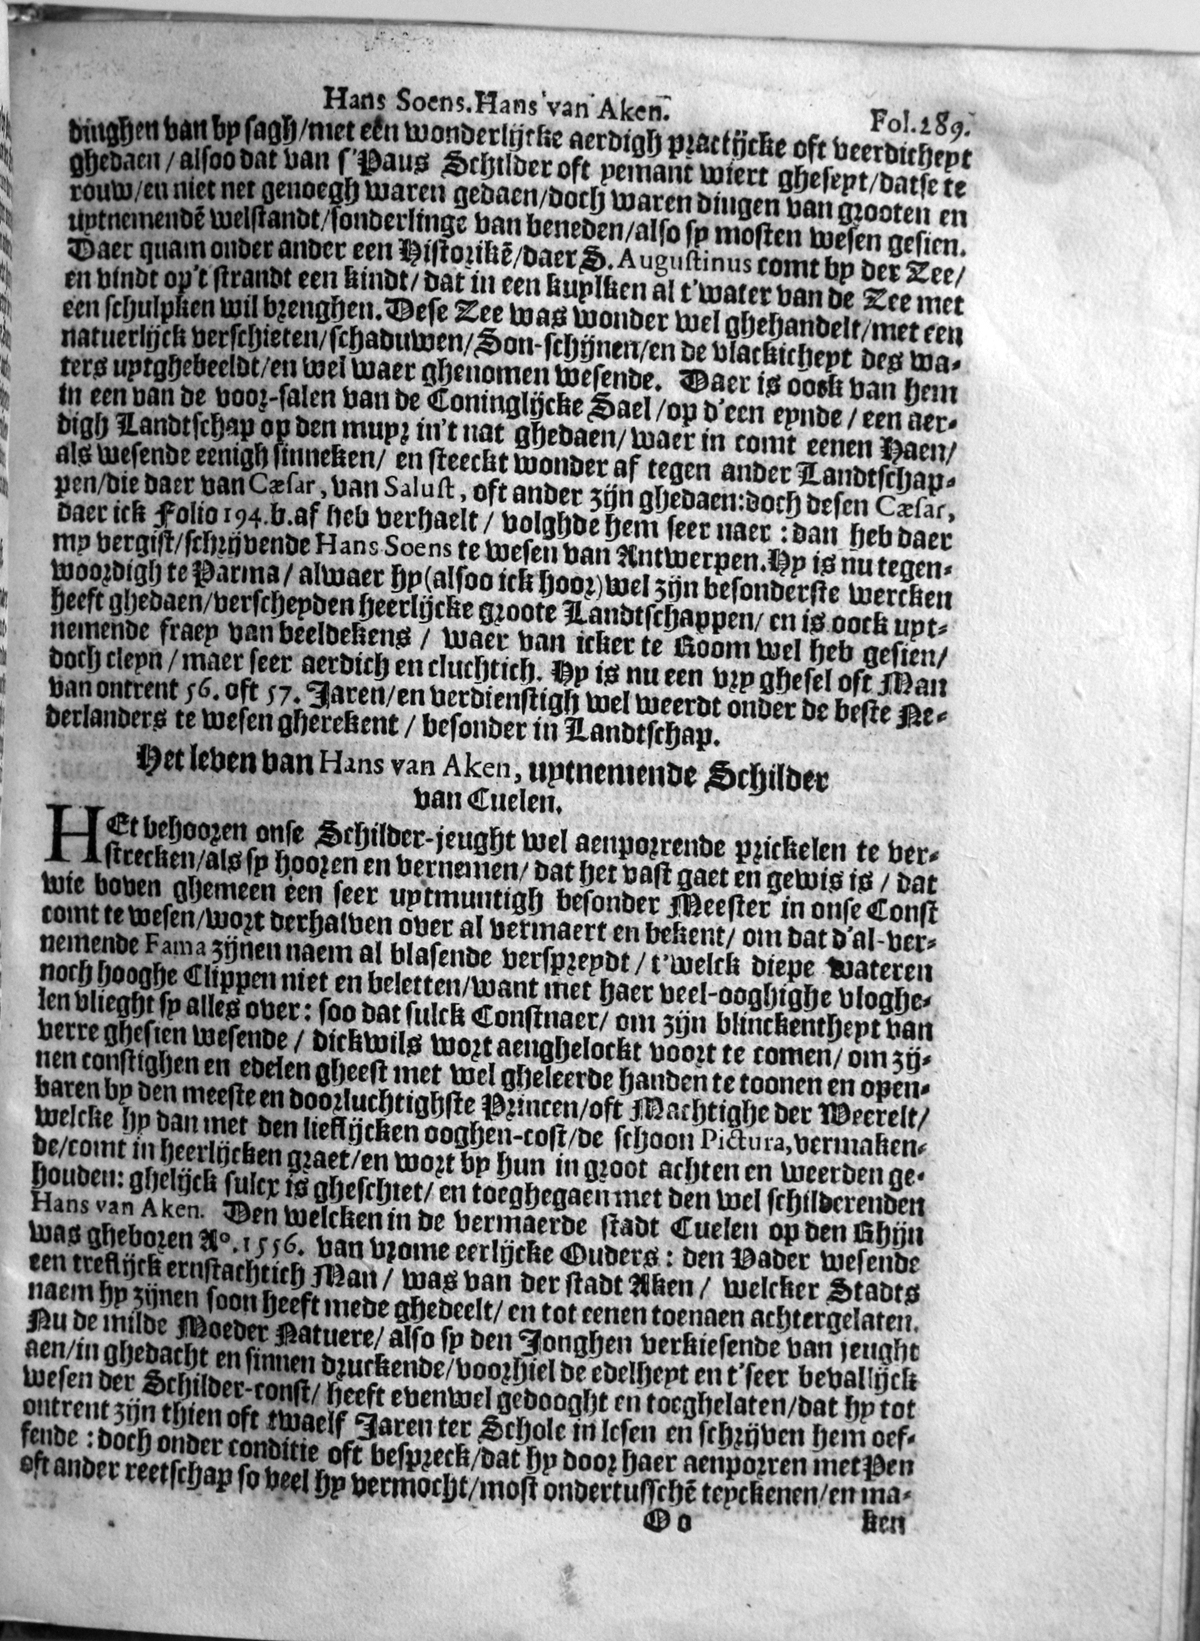 Hans Soens. Hans van Aken. Fol.289.
dinghen van by sagh/met een wonderlijcke aerdigh practijcke oft veerdicheyt
ghedaen/alsoo dat van s'Paus Schilder oft yemant wiert gheseyt/datse te
rouw/en niet net genoegh waren gedaen/doch waren dingen van grooten en
uytnemendē welstandt/sonderlinge van beneden/also sy mosten wesen gesien.
Daer quam onder ander een Historikē/daer S. Augustinus comt by der Zee/
en vindt op't strandt een kindt/dat in een kuylken al t'water van de Zee met
een schulpken wil brenghen. Dese Zee was wonder wel ghehandelt/met een
natuerlijck verschieten/schaduwen/Son-schijnen/en de vlackicheyt des wa-
ters uytghebeeldt/en wel waer ghenomen wesende. Daer is oock van hem
in een van de voor-salen van de Coninglijcke Sael/op d'een eynde/een aer-
digh Landtschap op den muyr in't nat ghedaen/waer in comt eenen Haen/
als wesende eenigh sinneken/ en steeckt wonder af tegen ander Landtschap-
pen/die daer van Cæsar, van Salust, oft ander zijn ghedaen: doch desen Cæsar,
daer ick Folio 194.b.af heb verhaelt/ volghde hem seer naer: dan heb daer
my vergist/schrijvende Hans Soens te wesen van Antwerpen. Hy is nu tegen-
woordigh te Parma/ alwaer hy (alsoo ick hoor) wel zijn besonderste wercken
heeft ghedaen/verscheyden heerlijcke groote Landtschappen/ en is oock uyt-
nemende fraey van beeldekens/ waer van icker te Room wel heb gesien/
doch cleyn/maer seer aerdich en cluchtich. Hy is nu een vry ghesel oft Man
van ontrent 56. oft 57. Jaren/en verdienstigh wel weerdt onder de beste Ne-
derlanders te wesen gherekent/ besonder in Landtschap.
Het leven van Hans van Aken, uytnemende Schilder
van Cuelen.
HEt behooren onse Schilder-jeught wel aenporrende prickelen te ver-
strecken/als sy hooren en vernemen/ dat het vast gaet en gewis is/ dat
wie boven ghemeen een seer uytmuntigh besonder Meester in onse Const
comt te wesen/wort derhalven over al vermaert en bekent/ om dat d'al-ver-
nemende Fama zijnen naem al blasende verspreydt/ t'welck diepe wateren
noch hooghe Clippen niet en beletten/want met haer veel-ooghighe vloghe-
len vlieght sy alles over: soo dat sulck Constnaer/ om zijn blinckentheyt van
verre ghesien wesende/ dickwils wort aenghelockt voort te comen/ om zij-
nen constighen en edelen gheest met wel gheleerde handen te toonen en open-
baren by den meeste en doorluchtighste Princen/oft Machtighe der Weerelt/
welcke hy dan met den lieflijcken ooghen-cost/de schoon Pictura, vermaken-
de/comt in heerlijcken graet/en wort by hun in groot achten en weerden ge-
houden: ghelijck sulcx is gheschiet/ en toeghegaen met den wel schilderenden
Hans van Aken. Den welcken in de vermaerde stadt Cuelen op den Rhijn
was gheboren Aº. 1556. van vrome eerlijcke Ouders: den Vader wesende
een treflijck ernstachtich Man/ was van der stadt Aken/ welcker Stadts
naem hy zijnen soon heeft mede ghedeelt/ en tot eenen toenaen achtergelaten.
Nu de milde Moeder Natuere/ also sy den Jonghen verkiesende van jeught
aen/in ghedacht en sinnen druckende/voorhiel de edelheyt en t'seer bevallijck
wesen der Schilder-const/ heeft evenwel gedooght en toeghelaten/dat hy tot
ontrent zijn thien oft twaelf Jaren ter Schole in lesen en schrijven hem oef-
fende: doch onder conditie oft bespreck/dat hy door haer aenporren met Pen
oft ander reetschap so veel hy vermocht/most ondertusschē teyckenen/en ma-
Oo ken